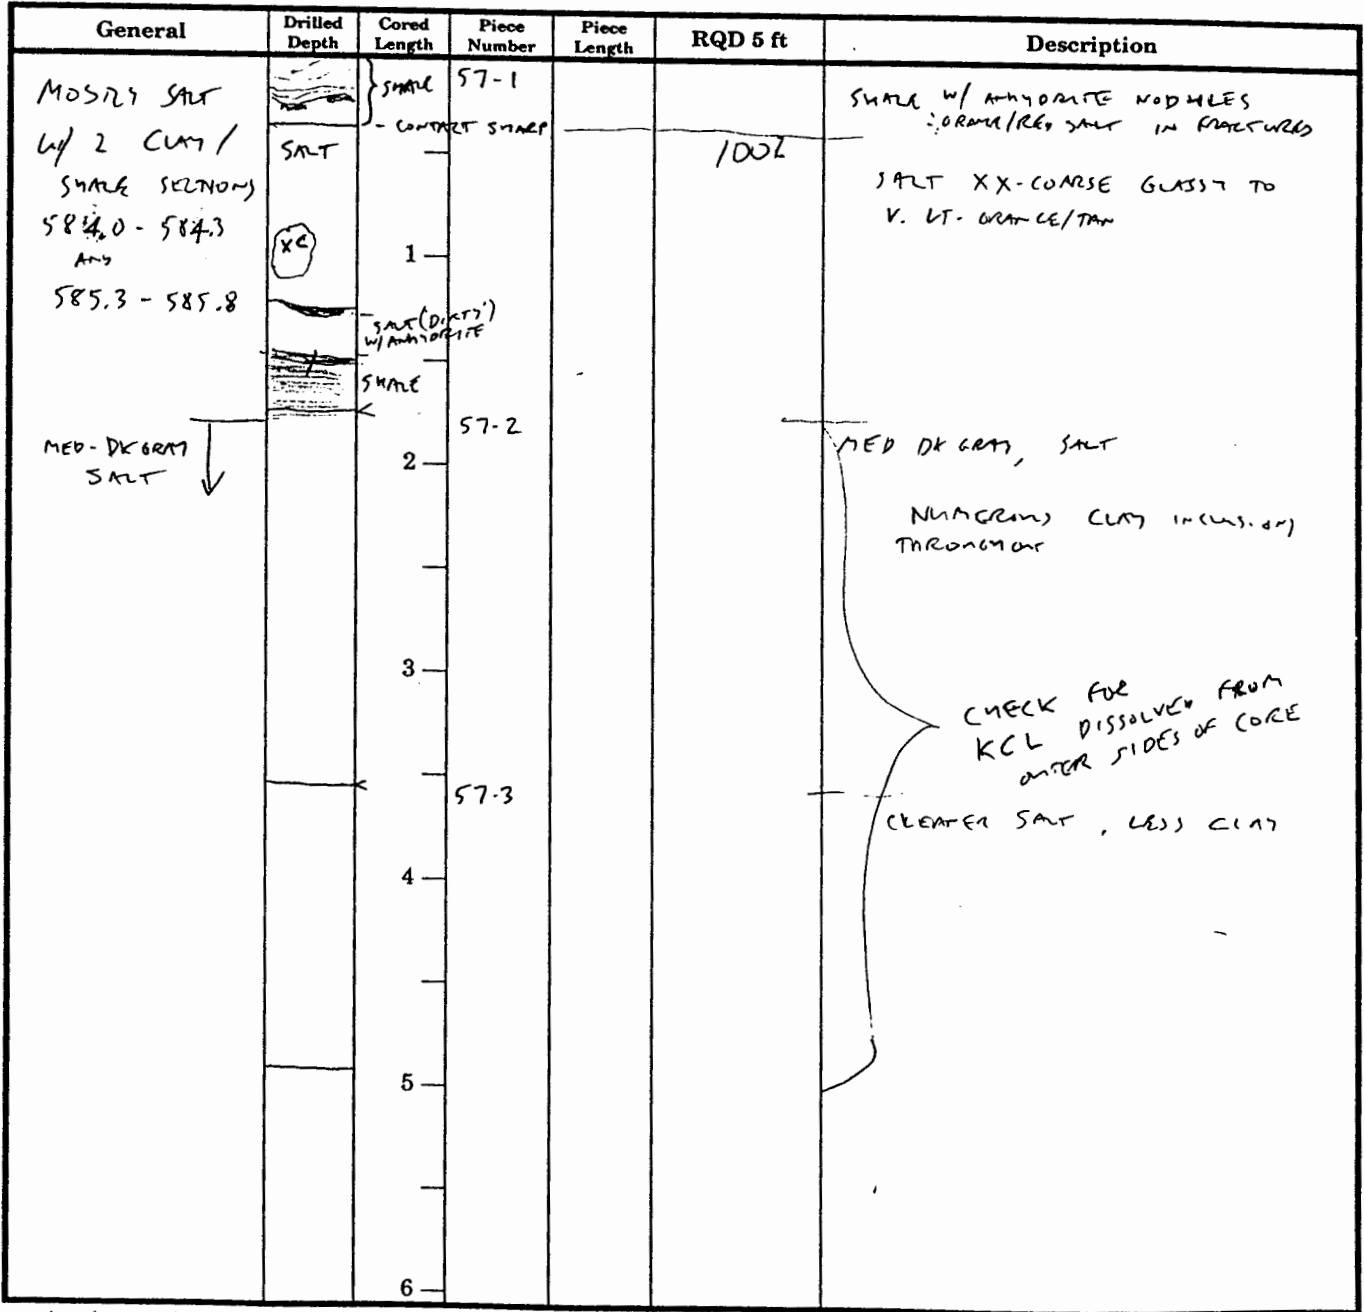 General
Drilled Depth
Cored Length
Piece Number
Piece Length
RQD 5 ft
Description
MOSTLY SALT
W/ 2 CLAY /
SHALE SECTIONS
584.0 - 584.3
AND
585.3 - 585.8
MED-DK GRAY
SALT
SALT
XC
SHALE
- CONTACT SHARP
1
SALT (DIRTY)
W/ ANHYDRITE
SHALE
2
3
4
5
6
57-1
57-2
57-3
100%
SHALE W/ ANHYDRITE NODULES
ORANGE/RED SALT IN FRACTURES
SALT XX-COARSE GLASSY TO
V. LT. ORANGE/TAN
MED DK GRAY, SALT
NUMEROUS CLAY INCLUSIONS
THROUGHOUT
CHECK FOR
KCL DISSOLVED FROM
OUTER SIDES OF CORE
CLEANER SALT, LESS CLAY